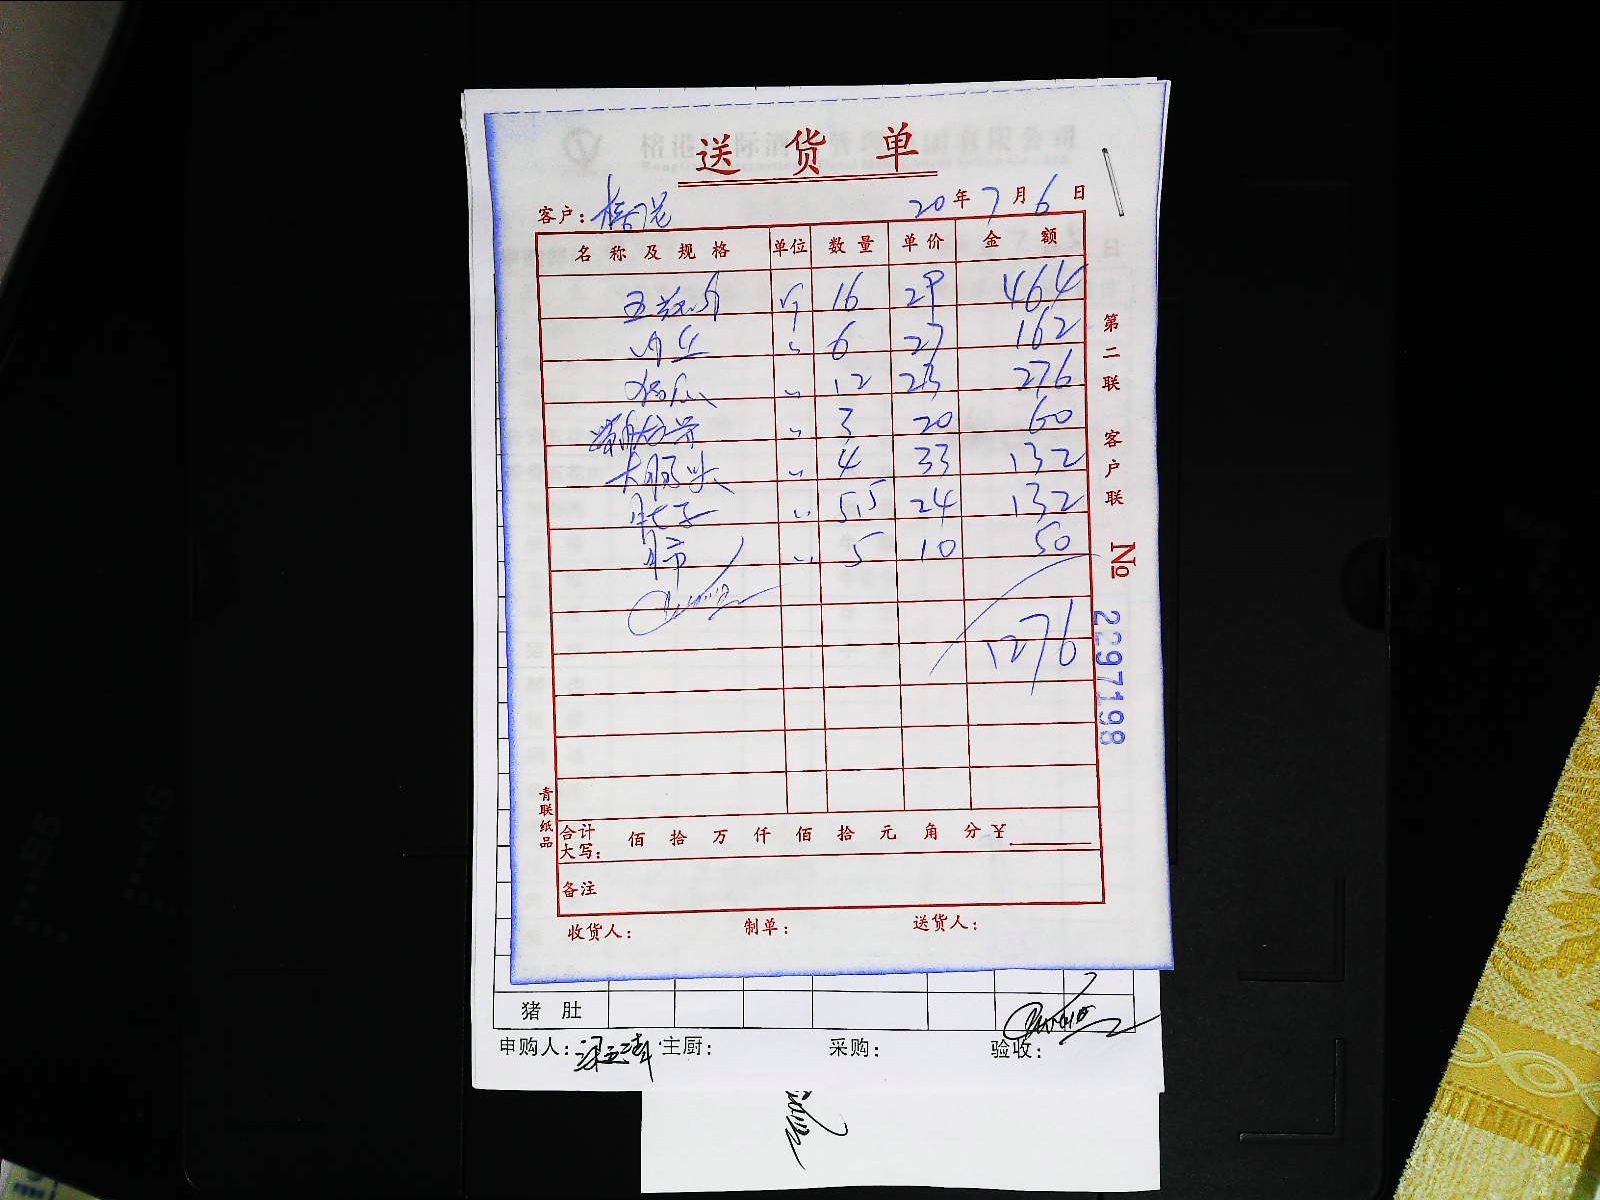 送货单
客户：榕港 20年7月6日
名称及规格 单位 数量 单价 金额
五花肉 斤 16 29 464
肉丝 〃 6 27 162
〃 12 23 276
〃 3 20 60
大肠头 〃 4 33 132
肚子 〃 5.5 24 132
肺 〃 5 10 50
1276
合计大写： 佰 拾 万 仟 佰 拾 元 角 分 ¥
备注
收货人： 制单： 送货人：
第二联 客户联
№ 2297198
青联纸品
猪肚
申购人： 主厨： 采购： 验收：